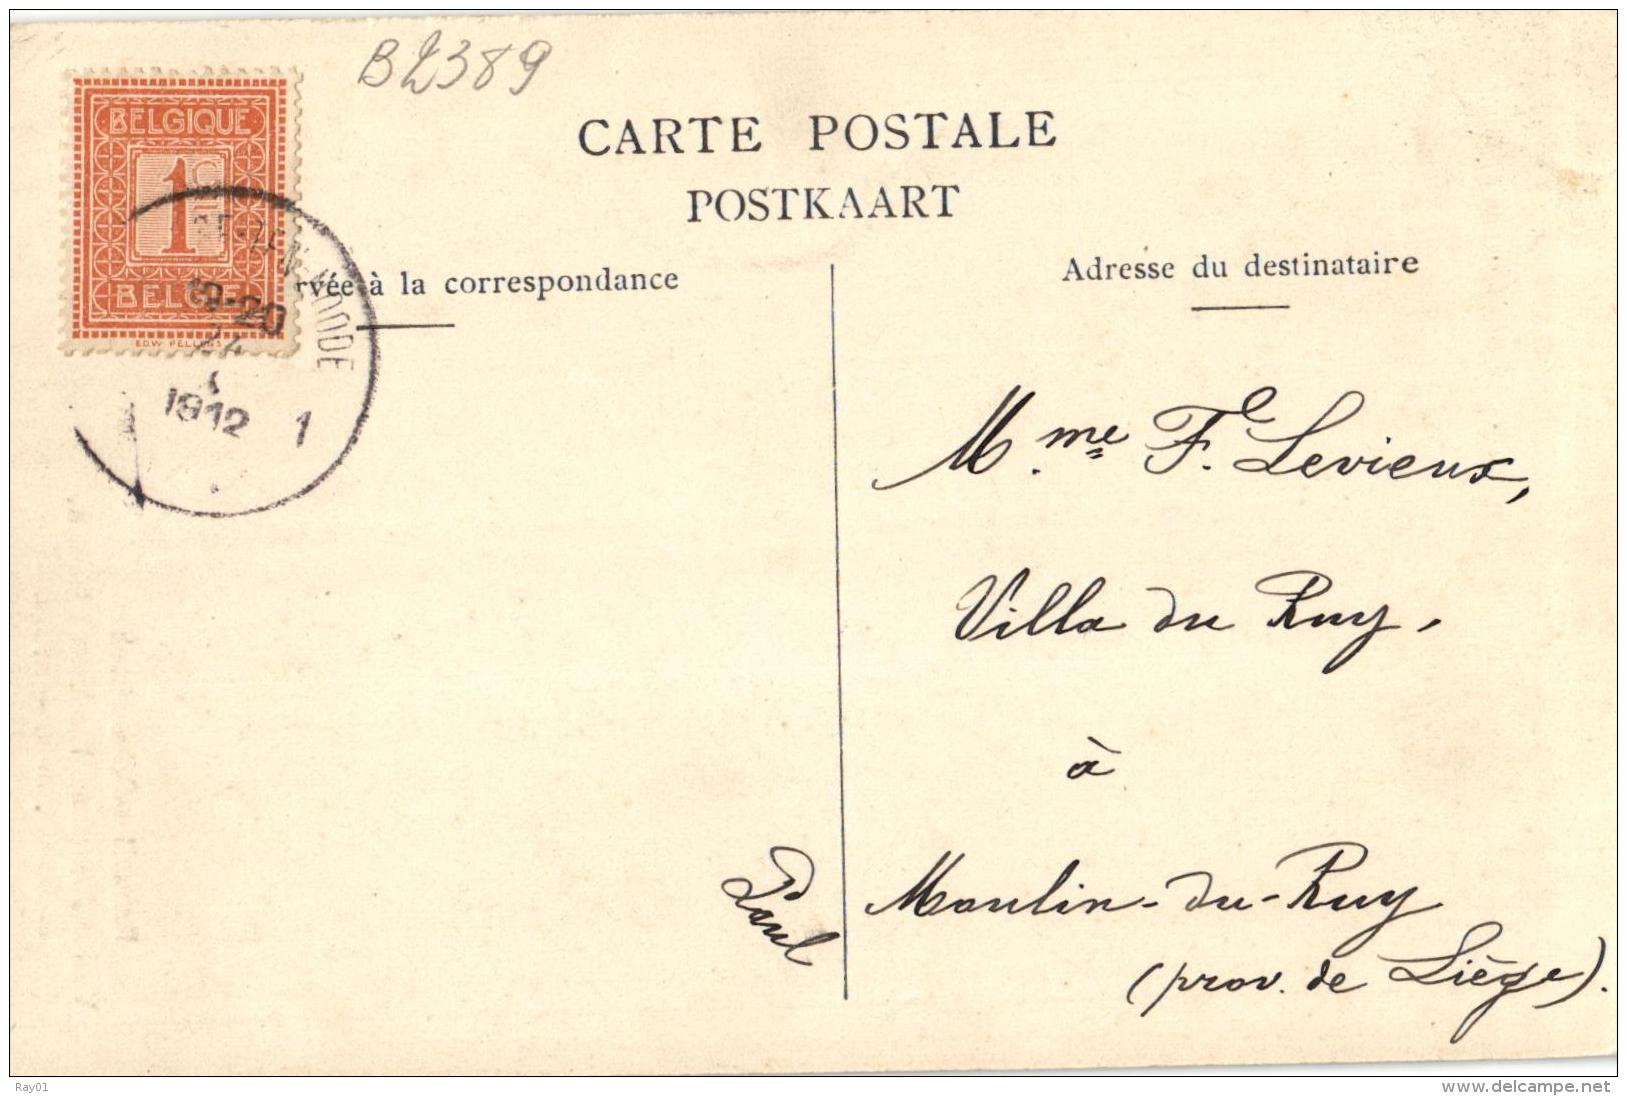 B2389
BELGIQUE
1 C
BELGIË
EDW PELLENS
19-20
24
1912
1
CARTE POSTALE
POSTKAART
rvée à la correspondance
Adresse du destinataire
M.me F. Levieux,
Villa du Ruy,
à
Moulin-du-Ruy
(prov. de Liège).
Paul
Ray01
www.delcampe.net